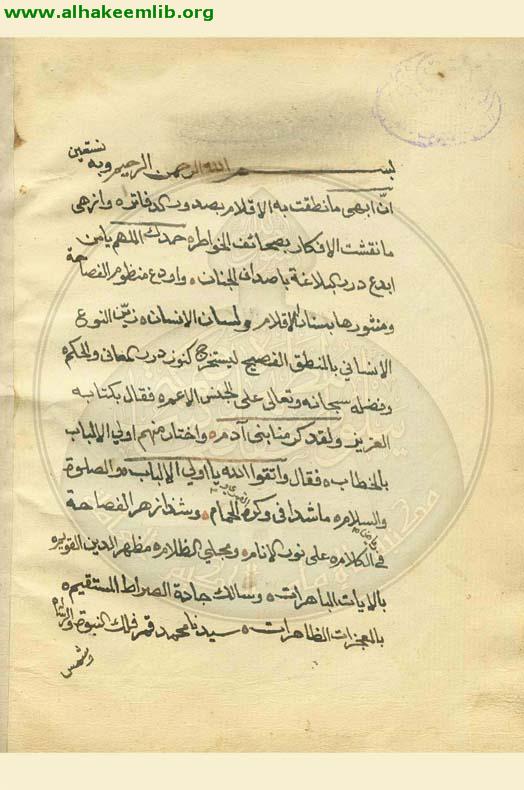 www.alhakeemlib.org
بسم الله الرحمن الرحيم وبه نستعين
انّ ابهى ما نطقت به الاقلام بصدور الدفاتر ه وازهى
ما نقشت الافكار بصحائف الخواطر ه حمدك اللهم يا من
ابدع درر البلاغة باصداف الجنان ه واودع منظوم الفصاحة
ومنثورها بلسان الاقلام ولسان الانسان ه زيّن النوع
الانساني بالنطق الفصيح ليستخرج كنوز درر المعاني والحكم ه
وفضله سبحانه وتعالى على الجنس الاعم ه فقال بكتابه
العزيز ولقد كرمنا بني آدم ه واختار منهم اولي الالباب
بالخطاب ه فقال واتقوا الله يا اولي الالباب ه والصلوة
والسلام ه ما شدا في وكره الحمام ه وشذا زهر الفصاحة
في الكلام ه على نور الانام ه ومجلي الظلام ه مظهر الدين القويم ه
بالايات الباهرات ه وسالك جادة الصراط المستقيم ه
بالمعجزات الظاهرات ه سيدنا محمد قمر فلك النبوة والرسالة
وشمس